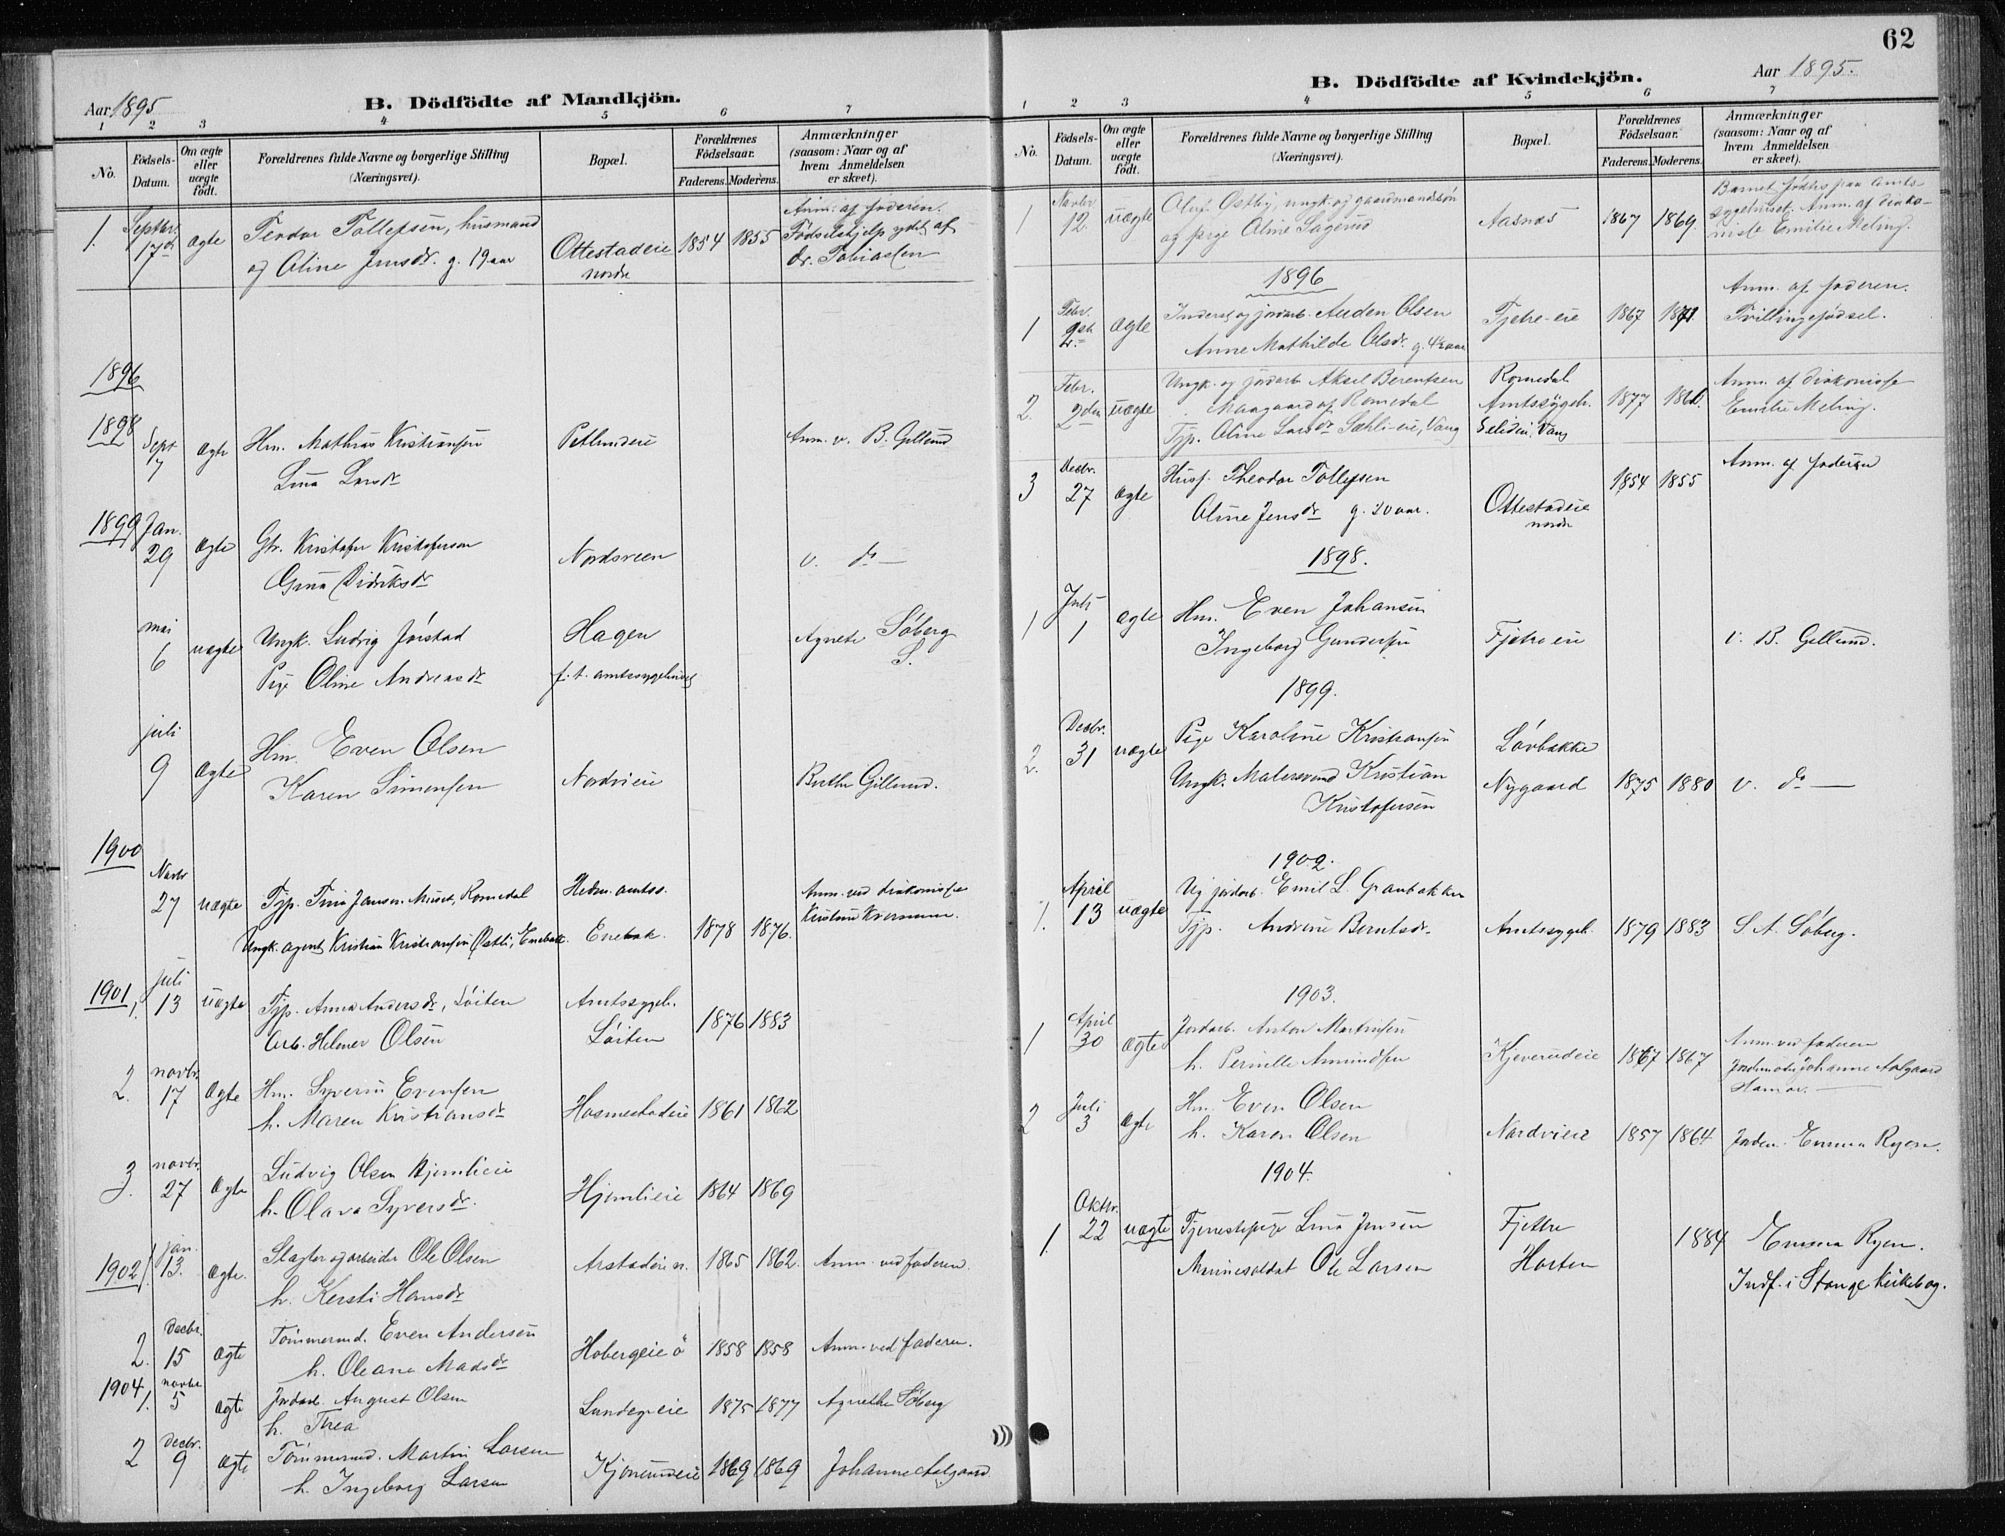 62
Aar 1895
B. Dödfödte af Mandkjön.
1 2 3 4 5 6 7
No.
Födsels-Datum.
Om ægte eller uægte födt.
Forældrenes fulde Navne og borgerlige Stilling (Næringsvei).
Bopæl.
Forældrenes Födselsaar.
Faderens. Moderens.
Anmærkninger (saasom: Naar og af hvem Anmeldelsen er skeet).
1. Septbr. 17de ægte Teodor Tollefsen, husmand Ottestadeie 1854 1855 Anm. af faderen.
og Oline Jensdr. g. 19 aar nordre Födselshjelp ydet af
dr. Tobiassen
1896
1898
Sept 7 ægte Hm. Mathias Kristiansen Anm. v. B. Gillund
Lina Larsdr
1899 Jan. 29 ægte Gbr. Kristofer Kristoferson Nordsveen v. do —
Gina Didriksdr
mai 6 uægte Ungk. Ludvig Jørstad Hagen Agnete Søberg
Pige Oline Andreasdr f. t. amtssygehuset S.
juli 9 ægte Hm. Even Olsen
Karen Simensen Nordvieie Berthe Gillund.
1900
Novbr 27 uægte Tjp. Tina Jansen, Romedal Hedm. amtss. Anm. ved diakonisse
Ungk. agent Kristian Kristiansen Østli, Enebak. Enebak. 1878 1876.
1901 1. juli 13 uægte Tjp. Anna Andersdr, Löiten Amtssygeh.
Arb. Helmer Olsen Löiten 1876 1883
2. novbr. 17 ægte Hm. Syverin Evensen
h. Maren Kristiansdr Hosmestadeie 1861 1862
3. novbr. 27 ægte Ludvig Olsen Hjemlieie
h. Olava Syversdr. Hjemlieie 1864 1869
1902 1. jan. 13. ægte. Slagter og arbeider Ole Olsen Arstadeie n. 1865 1862. Anm. ved faderen.
h. Kersti Hansdr
2. Decbr. 15 ægte Tömmermd. Even Andersen Hobergeie ö 1858 1858 Anm. ved faderen.
h. Oleane Madsdr
1904 1. novbr 5 ægte Jordarb. August Olsen Lundegeie 1875 1877 Agnethe Söberg
h. Thea
2 Decbr. 9 ægte Tömmermd. Martin Larsen 1869 1869 Johanne Aalgaard
h. Ingeborg Larsen
Aar 1895.
B. Dödfödte af Kvindekjön.
1 2 3 4 5 6 7
No.
Födsels-Datum.
Om ægte eller uægte födt.
Forældrenes fulde Navne og borgerlige Stilling (Næringsvei).
Bopæl.
Forældrenes Födselsaar.
Faderens. Moderens.
Anmærkninger (saasom: Naar og af hvem Anmeldelsen er skeet).
1 Novbr 12. uægte Oluf Ostby, ungk. og gaardmandssön Aasnæs 1867 1869. Barnet födtes paa Amts-
og pige Oline Sagerud sygehuset. Anm. af diako-
nisse Emilie Meling.
1896
1 Febr. 2den ægte Inderst og jordarb. Auden Olsen Fjetre-eie 1867 1871 Anm. af faderen.
Anne Mathilde Olsdr. g. 4½ aar Tvillingefödsel.
2. Febr. 2den uægte Ungk. og jordarb Aksel Berentsen Romedal 1877 Anm. af diakonisse
Maagaard af Romedal Amtssygeh. Emilie Meling.
Tjp. Oline Larsdr Sæhli-eie, Vang
3 Decbr. 27 ægte Husf. Theodor Tollefsen 1854 1855 Anm. af faderen
Oline Jensdr g. 20 aar. Ottestadeie nordr
1898.
1 Juli 1 ægte Hm. Even Johansen
Ingeborg Gundersen Fjetre eie v. B. Gillund.
1899.
2. Decbr. 31 uægte Pige Karoline Kristiansen Lövbakke
Ungk. Malersvend Kristian Nygaard 1875 1880 v. do —
Kristofersen
1902.
1. April 13 uægte Ug jordarb. Emil L. Granbakken
Tjp. Andrine Berntsdr. Amtssygeh. 1879 1883 S A. Söberg.
1903.
1 April 30 ægte Jordarb. Anton Martinsen Anm. ved faderen
h. Pernille Amundsen Kjeverudeie 1867 1867 Jordmoder Johanne Aalgaard
Hamar. —
2 Juli 3 ægte Hm. Even Olsen
h. Karen Olsen Nordvieie 1857 1864 Jordm. Emma Ryen.
1904.
1. Oktbr. 22 uægte Tjenestepige Lina Jensen Fjetre 1884 Emma Ryen.
Marinesoldat Ole Larsen Horten Indf. i Stange kirkebog.